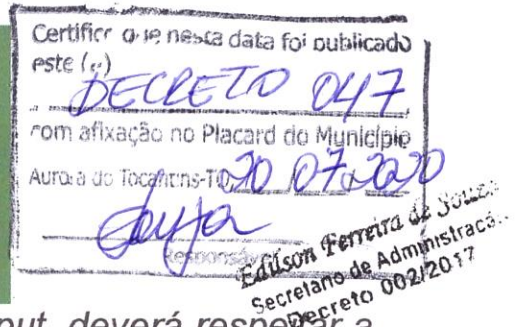 Certifico que nesta data foi publicado
este (a)
DECRETO 047
com afixação no Placard do Município
Aurora do Tocantins-TO, 20 / 07 / 2020
Responsável
Edilson Ferreira de Souza
Secretario de Administraçã..
Decreto 002/2017
put, deverá respeitar a